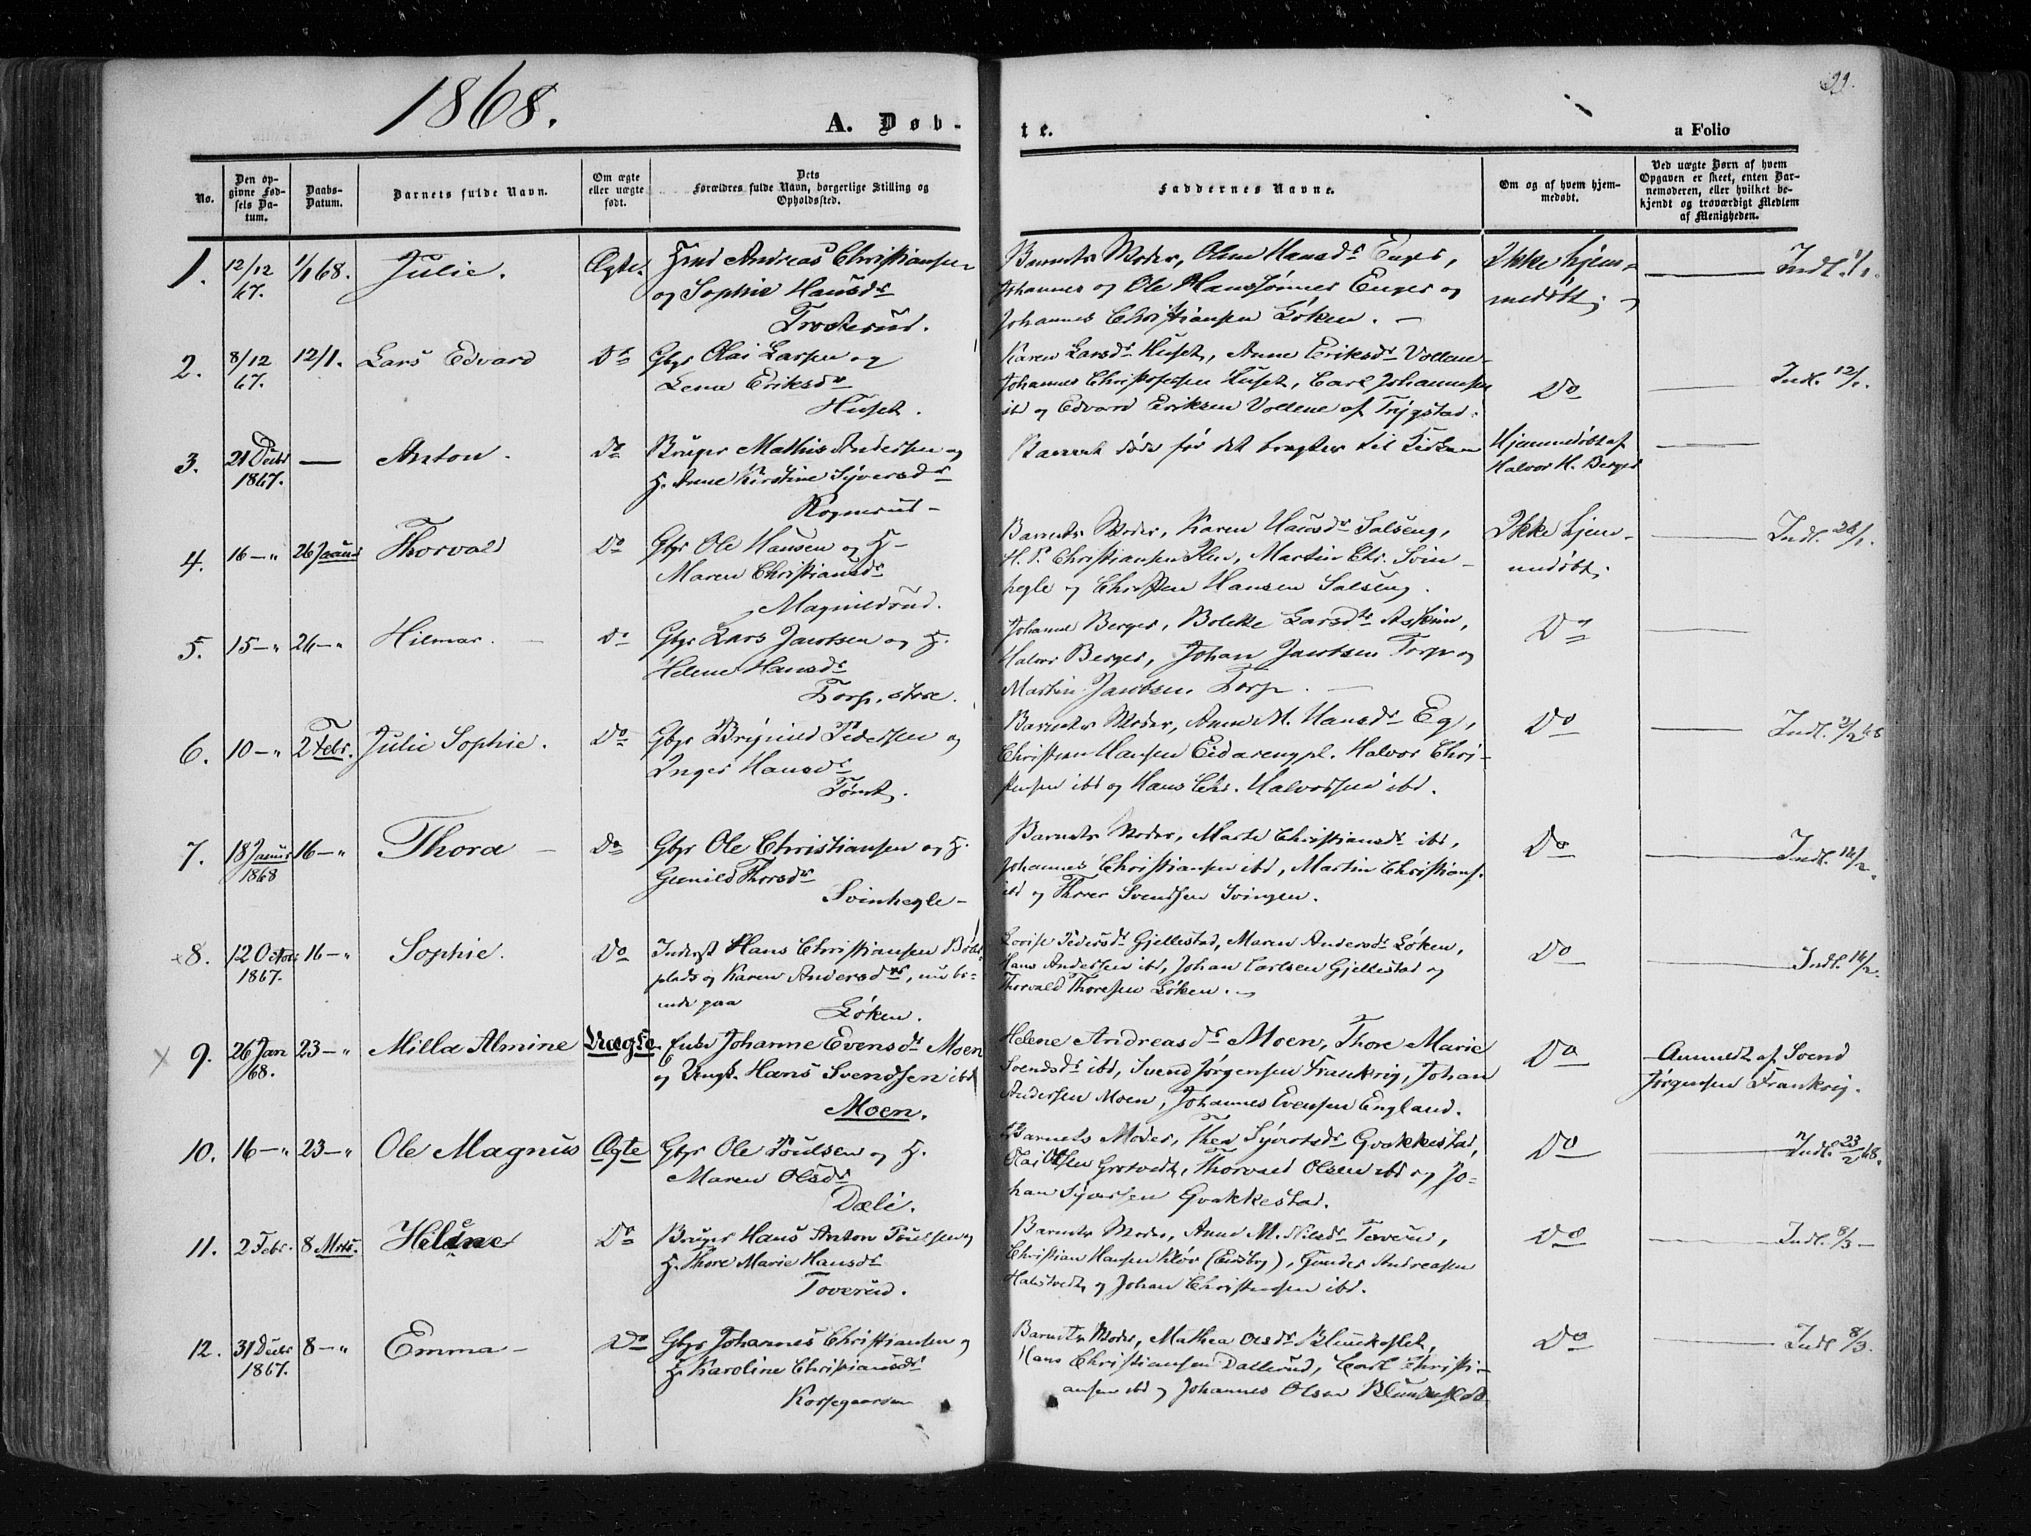 1868.
A. Døb-
te.
a Folio
99.
No.
Den op-
givne Fød-
sels Da-
tum.
Daabs-
Datum.
Barnets fulde Navn.
Om ægte
eller uægte
født.
Dets
Forældres fulde Navn, borgerlige Stilling og
Opholdssted.
Faddernes Navne.
Om og af hvem hjem-
medøbt.
Ved uægte Børn af hvem
Opgaven er skeet, enten Bar-
nemoderen, eller hvilket be-
kjendt og troværdigt Medlem
af Menigheden.
1.
12/12
67.
1/1 68.
Julie.
Ægte.
Andreas Christiansen
og Sophie Hansdr
Trockerud.
Barnets Moder, Oline Hansdr Enger,
Johannes og Ole Hanssønner Enger og
Johannes Christiansen Løken. —
Ikke hjem-
medøbt;
Indl. 1/1.
2.
8/12
67.
12/1.
Lars Edvard
Do
Gbr Olai Larsen og
Lena Eriksdr
Huset.
Karen Larsdr Huset, Anne Eriksdr Vollene
Johannes Christophersen Huset, Carl Johannesen
ibd og Edvard Eriksen Vollene af Trygstad.
Do
Indl. 12/1.
3.
21 Decbr
1867.
—
Anton.
Do
Bruger Mathis Andersen og
H. Anne Kirstine Syversdr
Rognerud —
Barnet døde før det bragtes til Kirken
Hjemmedøbt af
Halvor H. Berger
4.
16 — "
26 Januar
Thorvald
Do
Gbr Ole Hansen og H—
Maren Christiansdr
Magnildrud.
Barnets Moder, Karen Hansdr Salseng,
H. P. Christiansen, Martin Chr. Svin-
hegle og Christen Hansen Salseng.
Ikke hjem-
medøbt;
Indl. 26/1.
5.
15 — "
26 — "
Hilmar. —
Do
Gbr Lars Jacobsen og H.
Helene Hansdr
Torp, store.
Johanne Berger, Bolette Larsdr Askim,
Halvor Berger, Johan Jacobsen Torp og
Martin Jacobsen Torp. —
Do
6.
10 — "
2 Febr.
Julie Sophie.
Do
Gbr Brynild Pedersen og
Inger Hansdr
Tømt.
Barnets Moder, Anne M. Hansdr Eg,
Christian Hansen Eidarengpl. Halvor Chri-
stensen ibd og Hans Chr. Halvorsen ibd.
Do
Indl. 2/2 68
7.
18 Januar
1868
16 — "
Thora —
Do
Gbr Ole Christiansen og H.
Gunild Thorsdr
Svinhegle —
Barnets Moder, Marte Christiansdr ibd,
Johannes Christiansen ibd, Martin Christians.
ibd og Thorer Svendsen Svingen.
Do
Indl. 16/2.
× 8.
12 Octobr
1867.
16 — "
Sophie.
Do
Inderst Hans Christiansen
plads og Karen Andersdr, nu bo-
ende paa
Løken.
Lovise Pedersdr Gjellestad, Maren Andersdr Løken,
Hans Andersen ibd, Johan Carlsen Gjellestad og
Thorvald Thoresen Løken. —
Do
Indl. 16/2.
× 9.
26 Jan
/68.
23 — "
Milla Almine
Uægte.
Enke Johanne Evensdr Moen
og Ungk. Hans Svendsen ibd
Moen.
Helene Andreasdr Moen, Thore Marie
Svendsdr ibd, Svend Jørgensen Frankrig, Johan
Andersen Moen, Johannes Evensen England.
Do
Anmeldt af Svend
Jørgensen Frankrig.
10.
16 — "
23 — "
Ole Magnus
Ægte
Gbr Ole Poulsen og H.
Maren Olsdr
Dæli.
Barnets Moder, Thea Syvertsdr Gvakkestad,
Olai Olsen Grøtvedt, Thorvald Olsen ibd og Jo-
han Syversen Gvakkestad.
Do
Indl. 23/2 68.
11.
2 Febr.
8 Mrts.
Helene
Do
Bruger Hans Anton Poulsen og
H. Thore Marie Hansdr
Toverud.
Barnets Moder, Anne M. Nilsdr Toverud,
Christian Hansen Klør (Eidsbrg), Gunder Andreasen
Halstvedt og Johan Christensen ibd.
Do
Indl. 8/3 —
12.
31 Decbr
1867.
8 — "
Emma —
Do
Gbr Johannes Christiansen og
H. Karoline Christiansdr
Korsegaarden
Barnets Moder, Mathea Olsdr Blunkeslet,
Hans Christiansen Dallerud, Carl Christi-
ansen ibd og Johannes Olsen Blunkeslet.
Do
Indl 8/3.